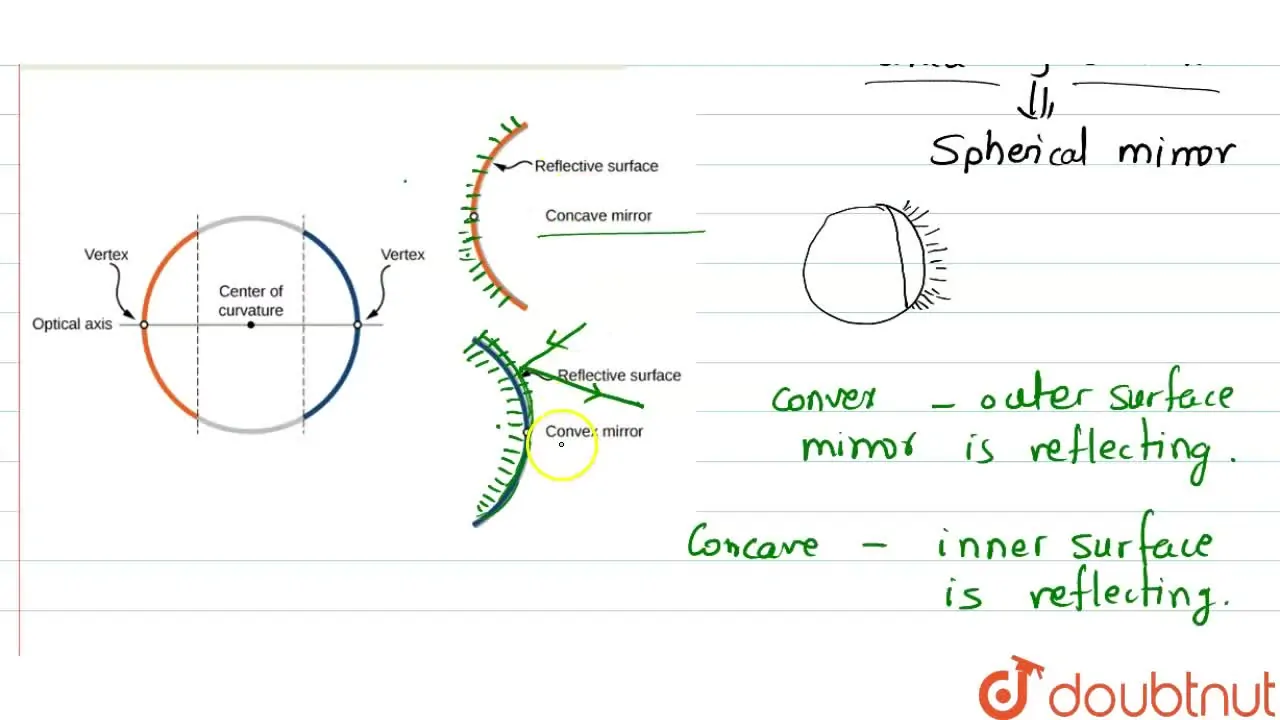 Spherical mirror
Reflective surface
Concave mirror
Vertex
Vertex
Center of
curvature
Optical axis
Reflective surface
Convex mirror
convex – outer surface
mirror is reflecting.
Concave – inner surface
is reflecting.
doubtnut